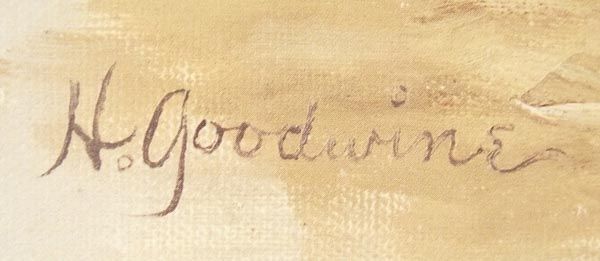 H. Goodwine